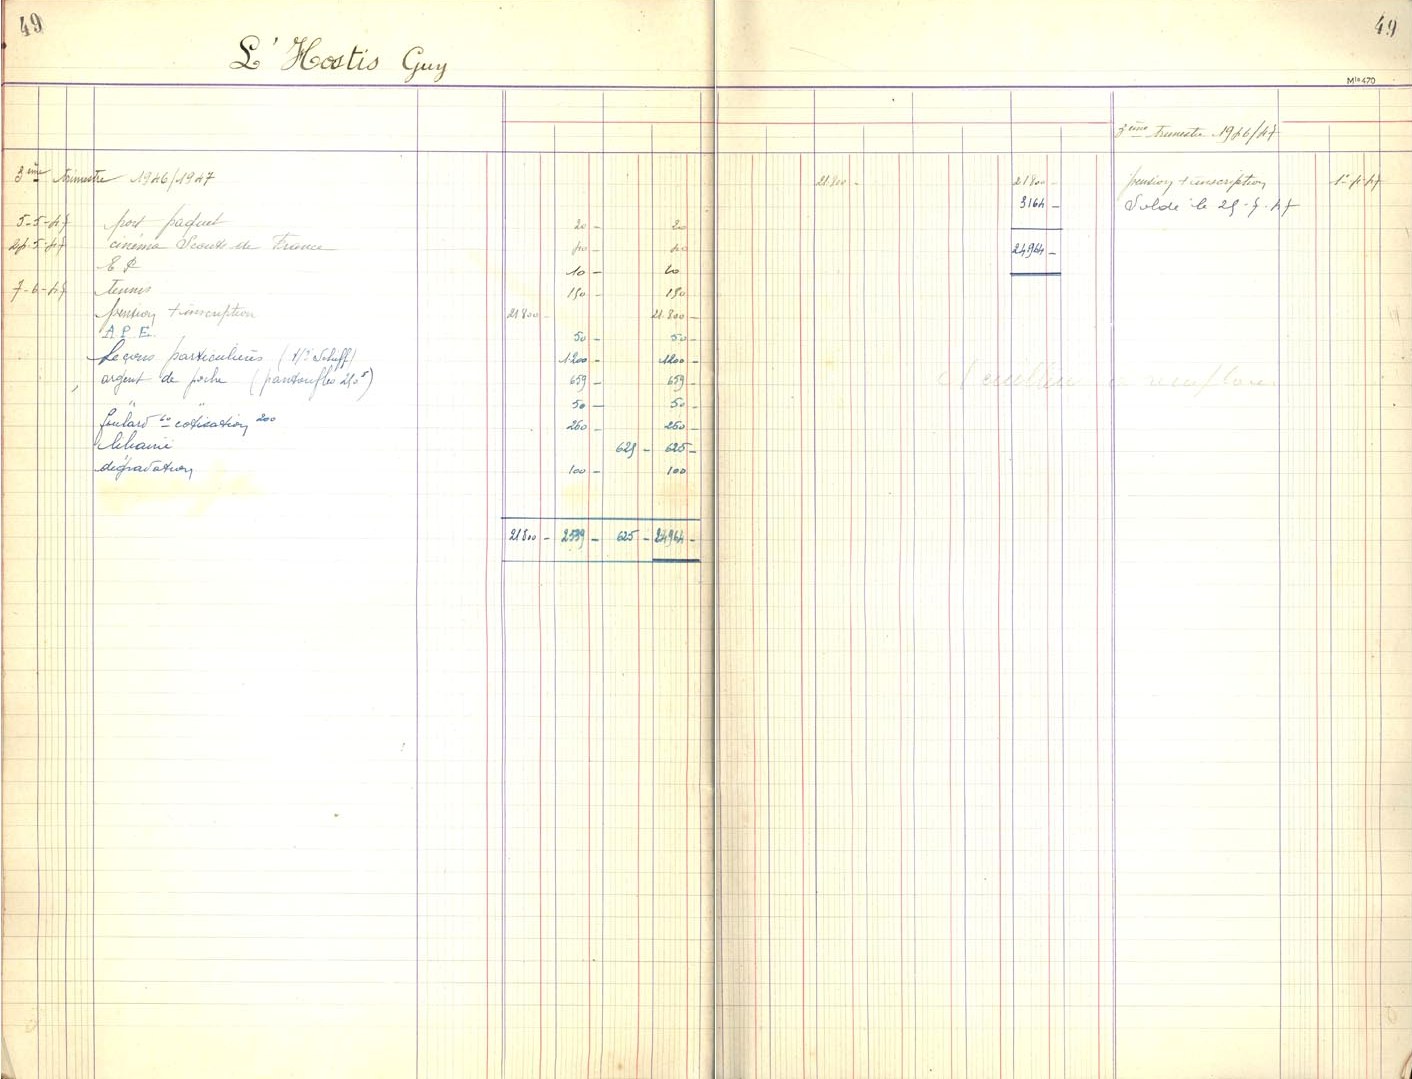 49
49
L'Hostis Guy
Mle 470
3ème trimestre 1946/47
3ème trimestre 1946/1947
21800 - 21800 - pension + inscription 1-5-47
3164 - Solde le 25-7-47
24964 -
5-5-47 port paquet 20 - 20
5-47 cinéma Scouts de France
10 -
7-6-47 tennis 150 - 150
pension + inscription 21800 - 21.800 -
A P E. 50 - 50 -
Leçons particulières 1200 - 1200 -
argent de poche (pantoufles 210 ) 659 - 659 -
" " 50 - 50 -
foulard 60 cotisation 200 260 - 260 -
librairie 625 - 625 -
dégradation 100 - 100
21800 - 2539 - 625 - 24964 -